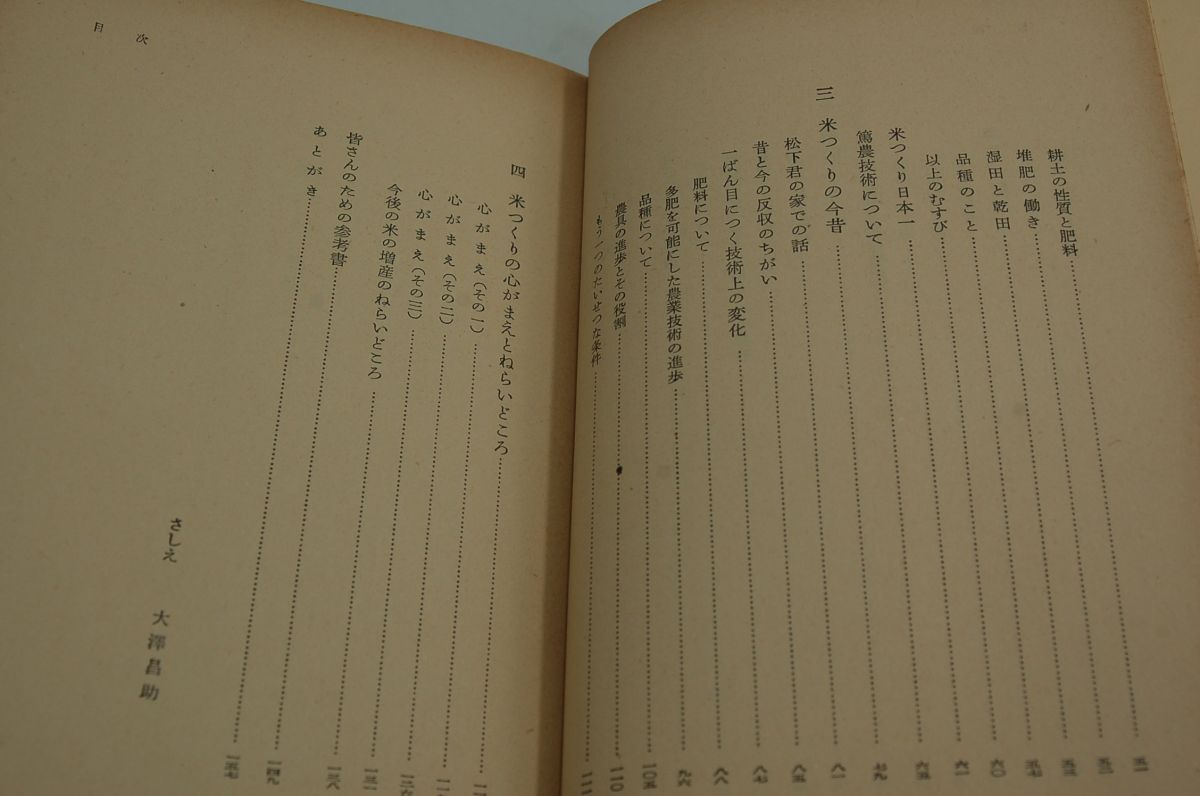 耕土の性質と肥料……五一
堆肥の働き……五二
湿田と乾田……五三
品種のこと……五七
以上のむすび……六〇
米つくり日本一……六一
篤農技術について……六五
三 米つくりの今昔……七九
松下君の家での話……八一
昔と今の反収のちがい……八五
一ばん目につく技術上の変化……八七
肥料について……八八
多肥を可能にした農業技術の進歩……九六
品種について……一〇五
農具の進歩とその役割……一一〇
もう一つのたいせつな条件……
目次
四 米つくりの心がまえとねらいどころ……
心がまえ(その一)……
心がまえ(その二)……一二六
心がまえ(その三)……一三一
今後の米の増産のねらいどころ……一三八
皆さんのための参考書……一四九
あとがき……一五七
さしえ 大澤昌助